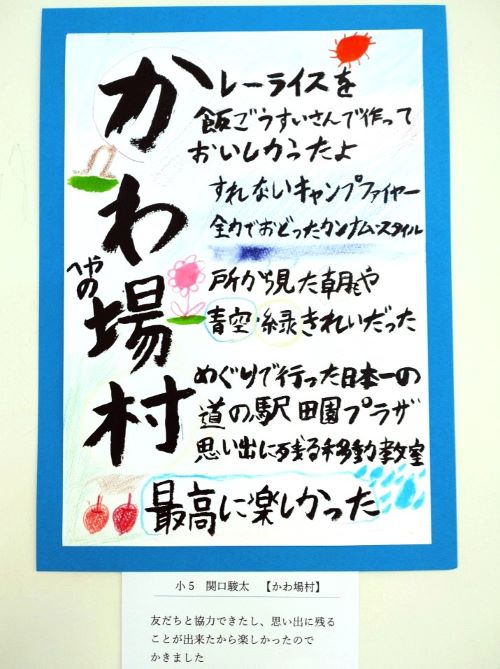 かわ場村
へやの
レーライスを
飯ごうすいさんで作って
おいしかったよ
すれないキャンプファイヤー
全力でおどったカンナム・スタイル
所から見た朝もや
青空・緑きれいだった
めぐりで行った日本一の
道の駅 田園プラザ
思い出に残る移動教室
最高に楽しかった
小5 関口駿太 【かわ場村】
友だちと協力できたし、思い出に残る
ことが出来たから楽しかったので
かきました